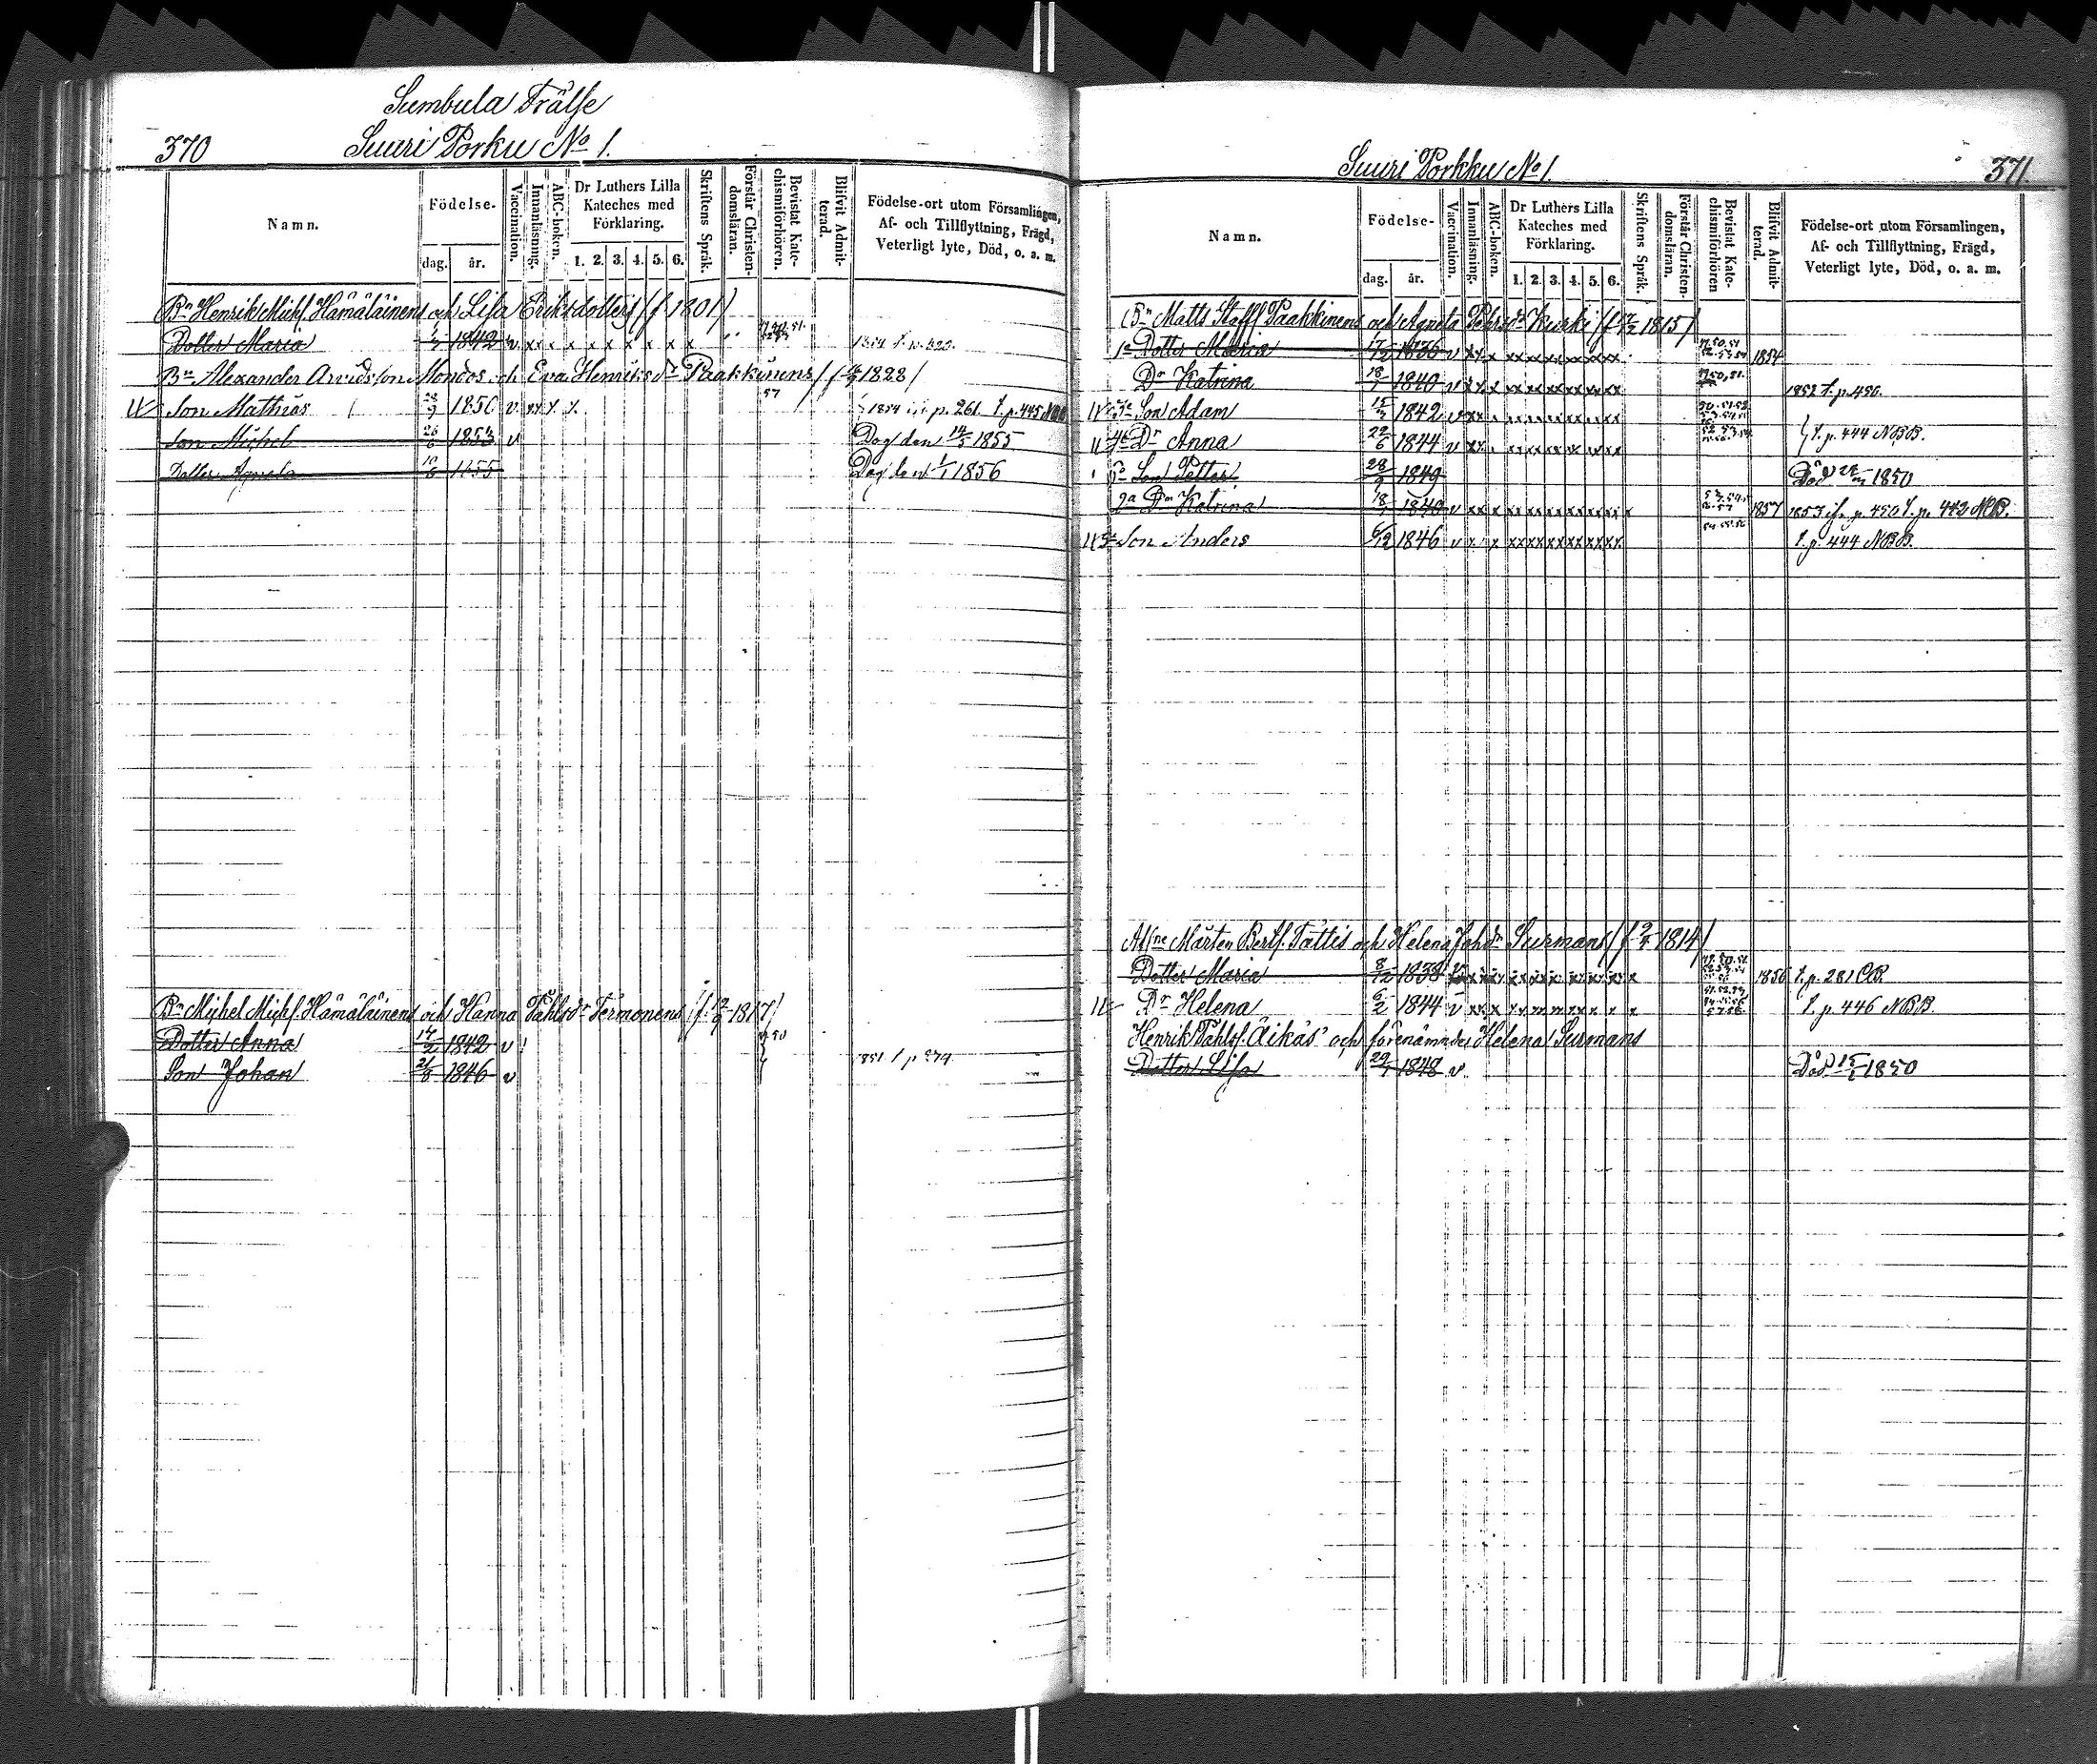 Sumbula Frälse
370 Suuri Porku No 1.
Namn. Födelse- dag. år. Vaccination. Innanläsning. ABC-boken. Dr Luthers Lilla Kateches med Förklaring. 1. 2. 3. 4. 5. 6. Skriftens Språk. Förstår Christen-domsläran. Bevistat Kate-chismiförhören. Blifvit Admit-terad. Födelse-ort utom Församlingen, Af- och Tillflyttning, Frägd, Veterligt lyte, Död, o. a. m.
Bn Henrik Mich. Hämäläinens och Lisa Eriksdotters (f 1801)
Dotter Maria 1842 v xx x x x x x x x x
Bn Alexander Arvidsson Mondos och Eva Henriksdr Paakkinens (f 1828)
Son Mathias 28/9 1850 v xx x x 57 1854 p. 261. t. p. 445
Son Michel 26/6 1853 v Dog den 14/5 1855
Dotter Agneta 10/8 1855 Dog den 1/1 1856
Bn Michel Mich. Hämäläinens och Hanna Påhlsdr Termonens (f. 1817)
Dotter Anna 14/2 1842 v
Son Johan 21/8 1846 v 1851 p 379.
Suuri Porkku No 1. 371.
Namn. Födelse- dag. år. Vaccination. Innanläsning. ABC-boken. Dr Luthers Lilla Kateches med Förklaring. 1. 2. 3. 4. 5. 6. Skriftens Språk. Förstår Christen-domsläran. Bevistat Kate-chismiförhören Blifvit Admit-terad. Födelse-ort utom Församlingen, Af- och Tillflyttning, Frägd, Veterligt lyte, Död, o. a. m.
Bn Matts Staff. Paakkinens och Agneta Pehrsdr Kurki (f 1815)
1a Dotter Maria 1836 v xx x xx xx xx xx xx xx 1854
Dr Katrina 18/1 1840 v xx x xx xx xx xx xx xx 50, 51. 1852 t. p. 450.
Son Adam 15/3 1842 v
4e Dr Anna 22/6 1844 v t. p. 444 NBB.
Son Petter 28/9 1849 Död 1850
2a Dr Katrina 18/1 1840 v xx x 1857 t. p. 442 NBB.
5e Son Anders 6/12 1846 v x x xx xx xx xx xx xx t. p. 444 NBB.
Mårten Bertl. Tattis och Helena Johdr Surmans (f 1814)
Dotter Maria 8/12 1838 1856 t. p. 281 CB.
Dr Helena 6/2 1844 v t. p. 446 NBB.
Henrik Påhlsf. Äikäs och förenämndes Helena Surmans
Dotter Lisa 29/1 1848 v. Död 1850